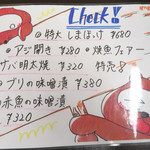 Check!
◎特大 しまほっけ ¥680
◎アジ開き ¥280 ◎焼魚フェアー
サバ明太焼 ¥320 特売
◎ブリの味噌漬 ¥380
◎赤魚の味噌漬
¥320